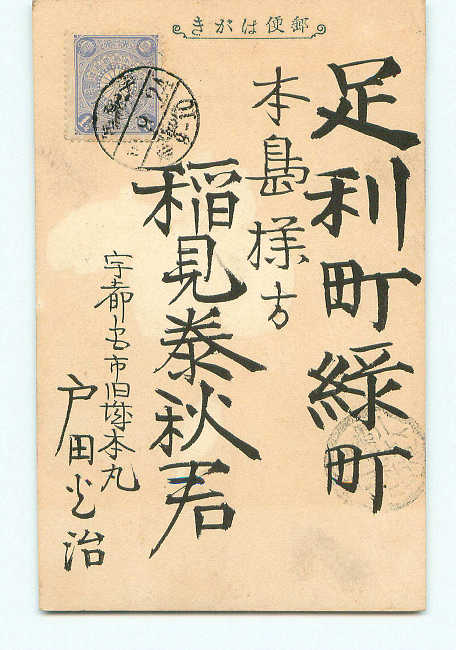 郵便はがき
足利町緑町
本島様方
稲見泰秋君
宇都宮市旧城本丸
戸田光治